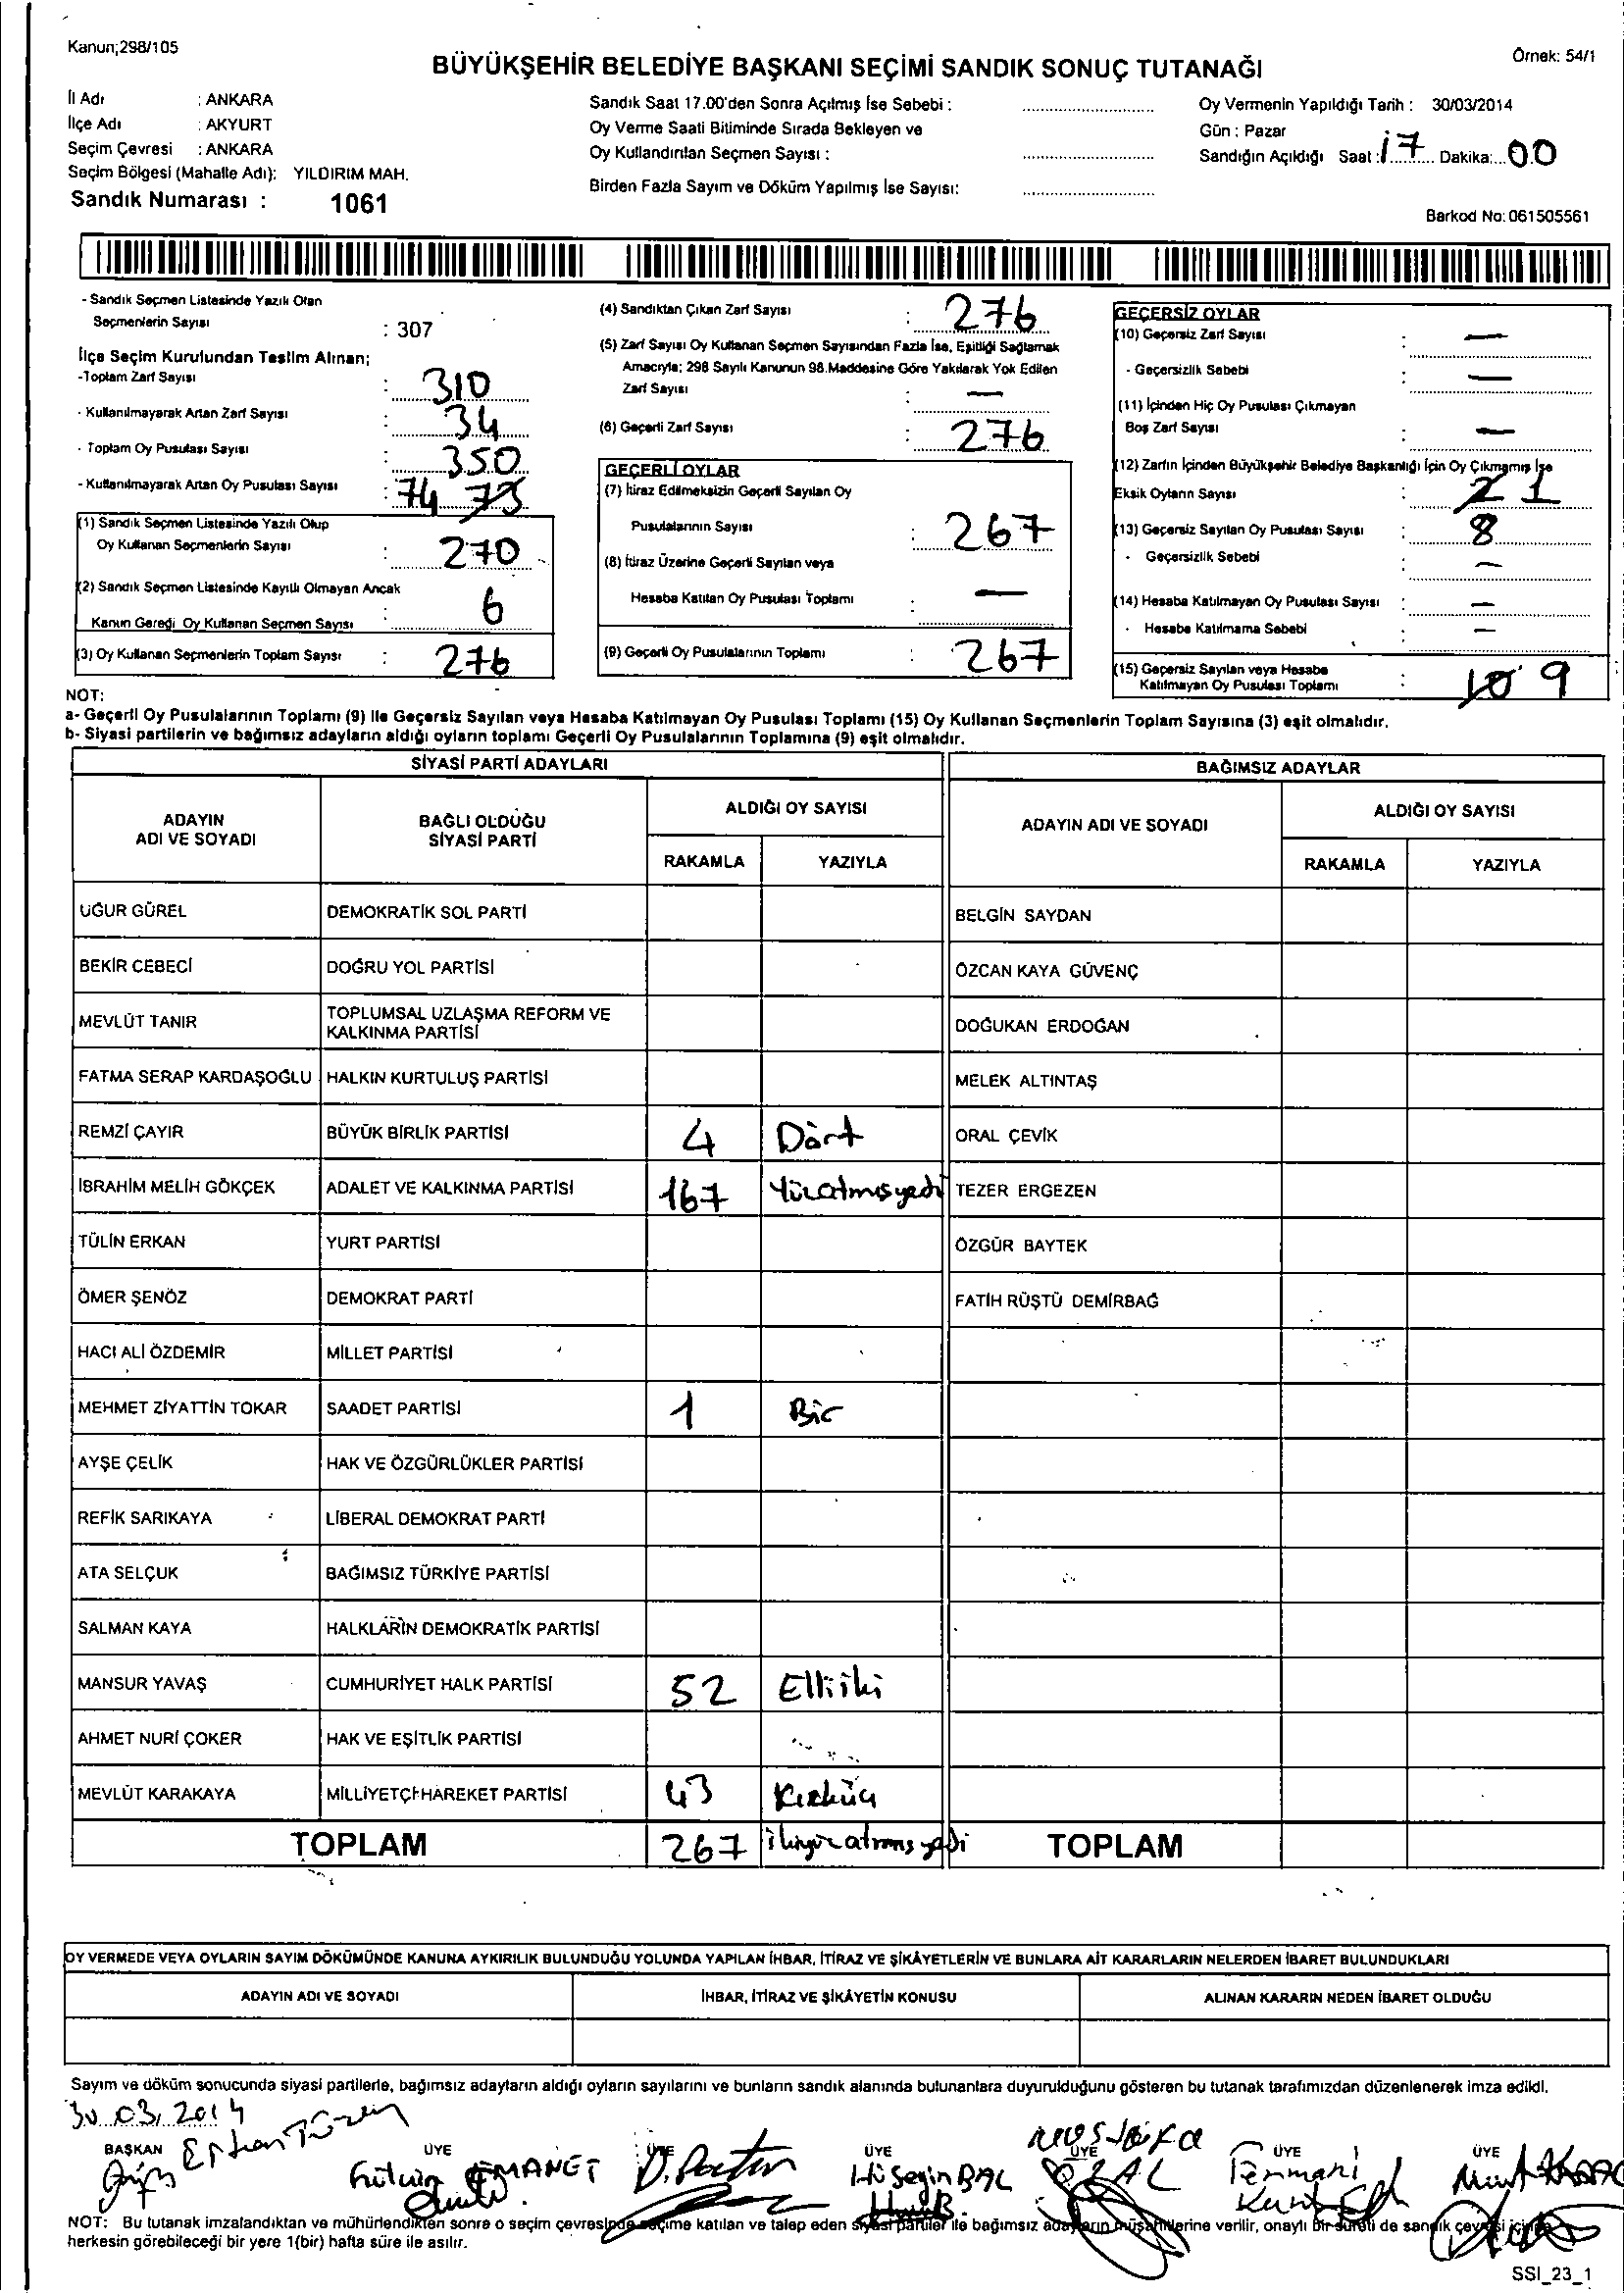 Kanun;298/105
Örnek: 54/1
BÜYÜKŞEHİR BELEDİYE BAŞKANI SEÇİMİ SANDIK SONUÇ TUTANAĞI
İl Adı : ANKARA
İlçe Adı : AKYURT
Seçim Çevresi : ANKARA
Seçim Bölgesi (Mahalle Adı): YILDIRIM MAH.
Sandık Numarası : 1061
Sandık Saat 17.00'den Sonra Açılmış İse Sebebi :
Oy Verme Saati Bitiminde Sırada Bekleyen ve
Oy Kullandırılan Seçmen Sayısı :
Birden Fazla Sayım ve Döküm Yapılmış İse Sayısı:
Oy Vermenin Yapıldığı Tarih : 30/03/2014
Gün : Pazar
Sandığın Açıldığı Saat : 17 Dakika: 00
Barkod No: 061505561
- Sandık Seçmen Listesinde Yazılı Olan
Seçmenlerin Sayısı : 307
İlçe Seçim Kurulundan Teslim Alınan;
-Toplam Zarf Sayısı : 310
- Kullanılmayarak Artan Zarf Sayısı : 34
- Toplam Oy Pusulası Sayısı : 350
- Kullanılmayarak Artan Oy Pusulası Sayısı : 74 73
(1) Sandık Seçmen Listesinde Yazılı Olup
Oy Kullanan Seçmenlerin Sayısı : 270
(2) Sandık Seçmen Listesinde Kayıtlı Olmayan Ancak
Kanun Gereği Oy Kullanan Seçmen Sayısı : 6
(3) Oy Kullanan Seçmenlerin Toplam Sayısı : 276
(4) Sandıktan Çıkan Zarf Sayısı : 276
(5) Zarf Sayısı Oy Kullanan Seçmen Sayısından Fazla İse, Eşitliği Sağlamak
Amacıyla; 298 Sayılı Kanunun 98.Maddesine Göre Yakılarak Yok Edilen
Zarf Sayısı : —
(6) Geçerli Zarf Sayısı : 276
GEÇERLİ OYLAR
(7) İtiraz Edilmeksizin Geçerli Sayılan Oy
Pusulalarının Sayısı : 267
(8) İtiraz Üzerine Geçerli Sayılan veya
Hesaba Katılan Oy Pusulası Toplamı : —
(9) Geçerli Oy Pusulalarının Toplamı : 267
GEÇERSİZ OYLAR
(10) Geçersiz Zarf Sayısı : —
- Geçersizlik Sebebi : —
(11) İçinden Hiç Oy Pusulası Çıkmayan
Boş Zarf Sayısı : —
(12) Zarfın İçinden Büyükşehir Belediye Başkanlığı İçin Oy Çıkmamış İse
Eksik Oyların Sayısı : 2 1
(13) Geçersiz Sayılan Oy Pusulası Sayısı : 8
- Geçersizlik Sebebi : —
(14) Hesaba Katılmayan Oy Pusulası Sayısı : —
- Hesaba Katılmama Sebebi : —
(15) Geçersiz Sayılan veya Hesaba
Katılmayan Oy Pusulası Toplamı : 10 9
NOT:
a- Geçerli Oy Pusulalarının Toplamı (9) ile Geçersiz Sayılan veya Hesaba Katılmayan Oy Pusulası Toplamı (15) Oy Kullanan Seçmenlerin Toplam Sayısına (3) eşit olmalıdır.
b- Siyasi partilerin ve bağımsız adayların aldığı oyların toplamı Geçerli Oy Pusulalarının Toplamına (9) eşit olmalıdır.
SİYASİ PARTİ ADAYLARI
ADAYIN ADI VE SOYADI
BAĞLI OLDUĞU SİYASİ PARTİ
ALDIĞI OY SAYISI
RAKAMLA YAZIYLA
UĞUR GÜREL DEMOKRATİK SOL PARTİ
BEKİR CEBECİ DOĞRU YOL PARTİSİ
MEVLÜT TANIR TOPLUMSAL UZLAŞMA REFORM VE
KALKINMA PARTİSİ
FATMA SERAP KARDAŞOĞLU HALKIN KURTULUŞ PARTİSİ
REMZİ ÇAYIR BÜYÜK BİRLİK PARTİSİ 4 Dört
İBRAHİM MELİH GÖKÇEK ADALET VE KALKINMA PARTİSİ 167 Yüzatmışyedi
TÜLİN ERKAN YURT PARTİSİ
ÖMER ŞENÖZ DEMOKRAT PARTİ
HACI ALİ ÖZDEMİR MİLLET PARTİSİ
MEHMET ZİYATTİN TOKAR SAADET PARTİSİ 1 Bir
AYŞE ÇELİK HAK VE ÖZGÜRLÜKLER PARTİSİ
REFİK SARIKAYA LİBERAL DEMOKRAT PARTİ
ATA SELÇUK BAĞIMSIZ TÜRKİYE PARTİSİ
SALMAN KAYA HALKLARIN DEMOKRATİK PARTİSİ
MANSUR YAVAŞ CUMHURİYET HALK PARTİSİ 52 Elliiki
AHMET NURİ ÇOKER HAK VE EŞİTLİK PARTİSİ
MEVLÜT KARAKAYA MİLLİYETÇİ HAREKET PARTİSİ 43 Kırküç
TOPLAM 267 ikiyüzatmışyedi
BAĞIMSIZ ADAYLAR
ADAYIN ADI VE SOYADI
ALDIĞI OY SAYISI
RAKAMLA YAZIYLA
BELGİN SAYDAN
ÖZCAN KAYA GÜVENÇ
DOĞUKAN ERDOĞAN
MELEK ALTINTAŞ
ORAL ÇEVİK
TEZER ERGEZEN
ÖZGÜR BAYTEK
FATİH RÜŞTÜ DEMİRBAĞ
TOPLAM
OY VERMEDE VEYA OYLARIN SAYIM DÖKÜMÜNDE KANUNA AYKIRILIK BULUNDUĞU YOLUNDA YAPILAN İHBAR, İTİRAZ VE ŞİKÂYETLERİN VE BUNLARA AİT KARARLARIN NELERDEN İBARET BULUNDUKLARI
ADAYIN ADI VE SOYADI İHBAR, İTİRAZ VE ŞİKÂYETİN KONUSU ALINAN KARARIN NEDEN İBARET OLDUĞU
Sayım ve döküm sonucunda siyasi partilerle, bağımsız adayların aldığı oyların sayılarını ve bunların sandık alanında bulunanlara duyurulduğunu gösteren bu tutanak tarafımızdan düzenlenerek imza edildi.
30.03.2014
BAŞKAN ÜYE ÜYE ÜYE ÜYE ÜYE ÜYE
EMANET Hüseyin BAL Mustafa
ÖZAL Fermani
NOT: Bu tutanak imzalandıktan ve mühürlendikten sonra o seçim çevresinde seçime katılan ve talep eden siyasi partiler ile bağımsız adayların müşahitlerine verilir, onaylı bir sureti de sandık çevresi içinde
herkesin görebileceği bir yere 1(bir) hafta süre ile asılır.
SSI_23_1